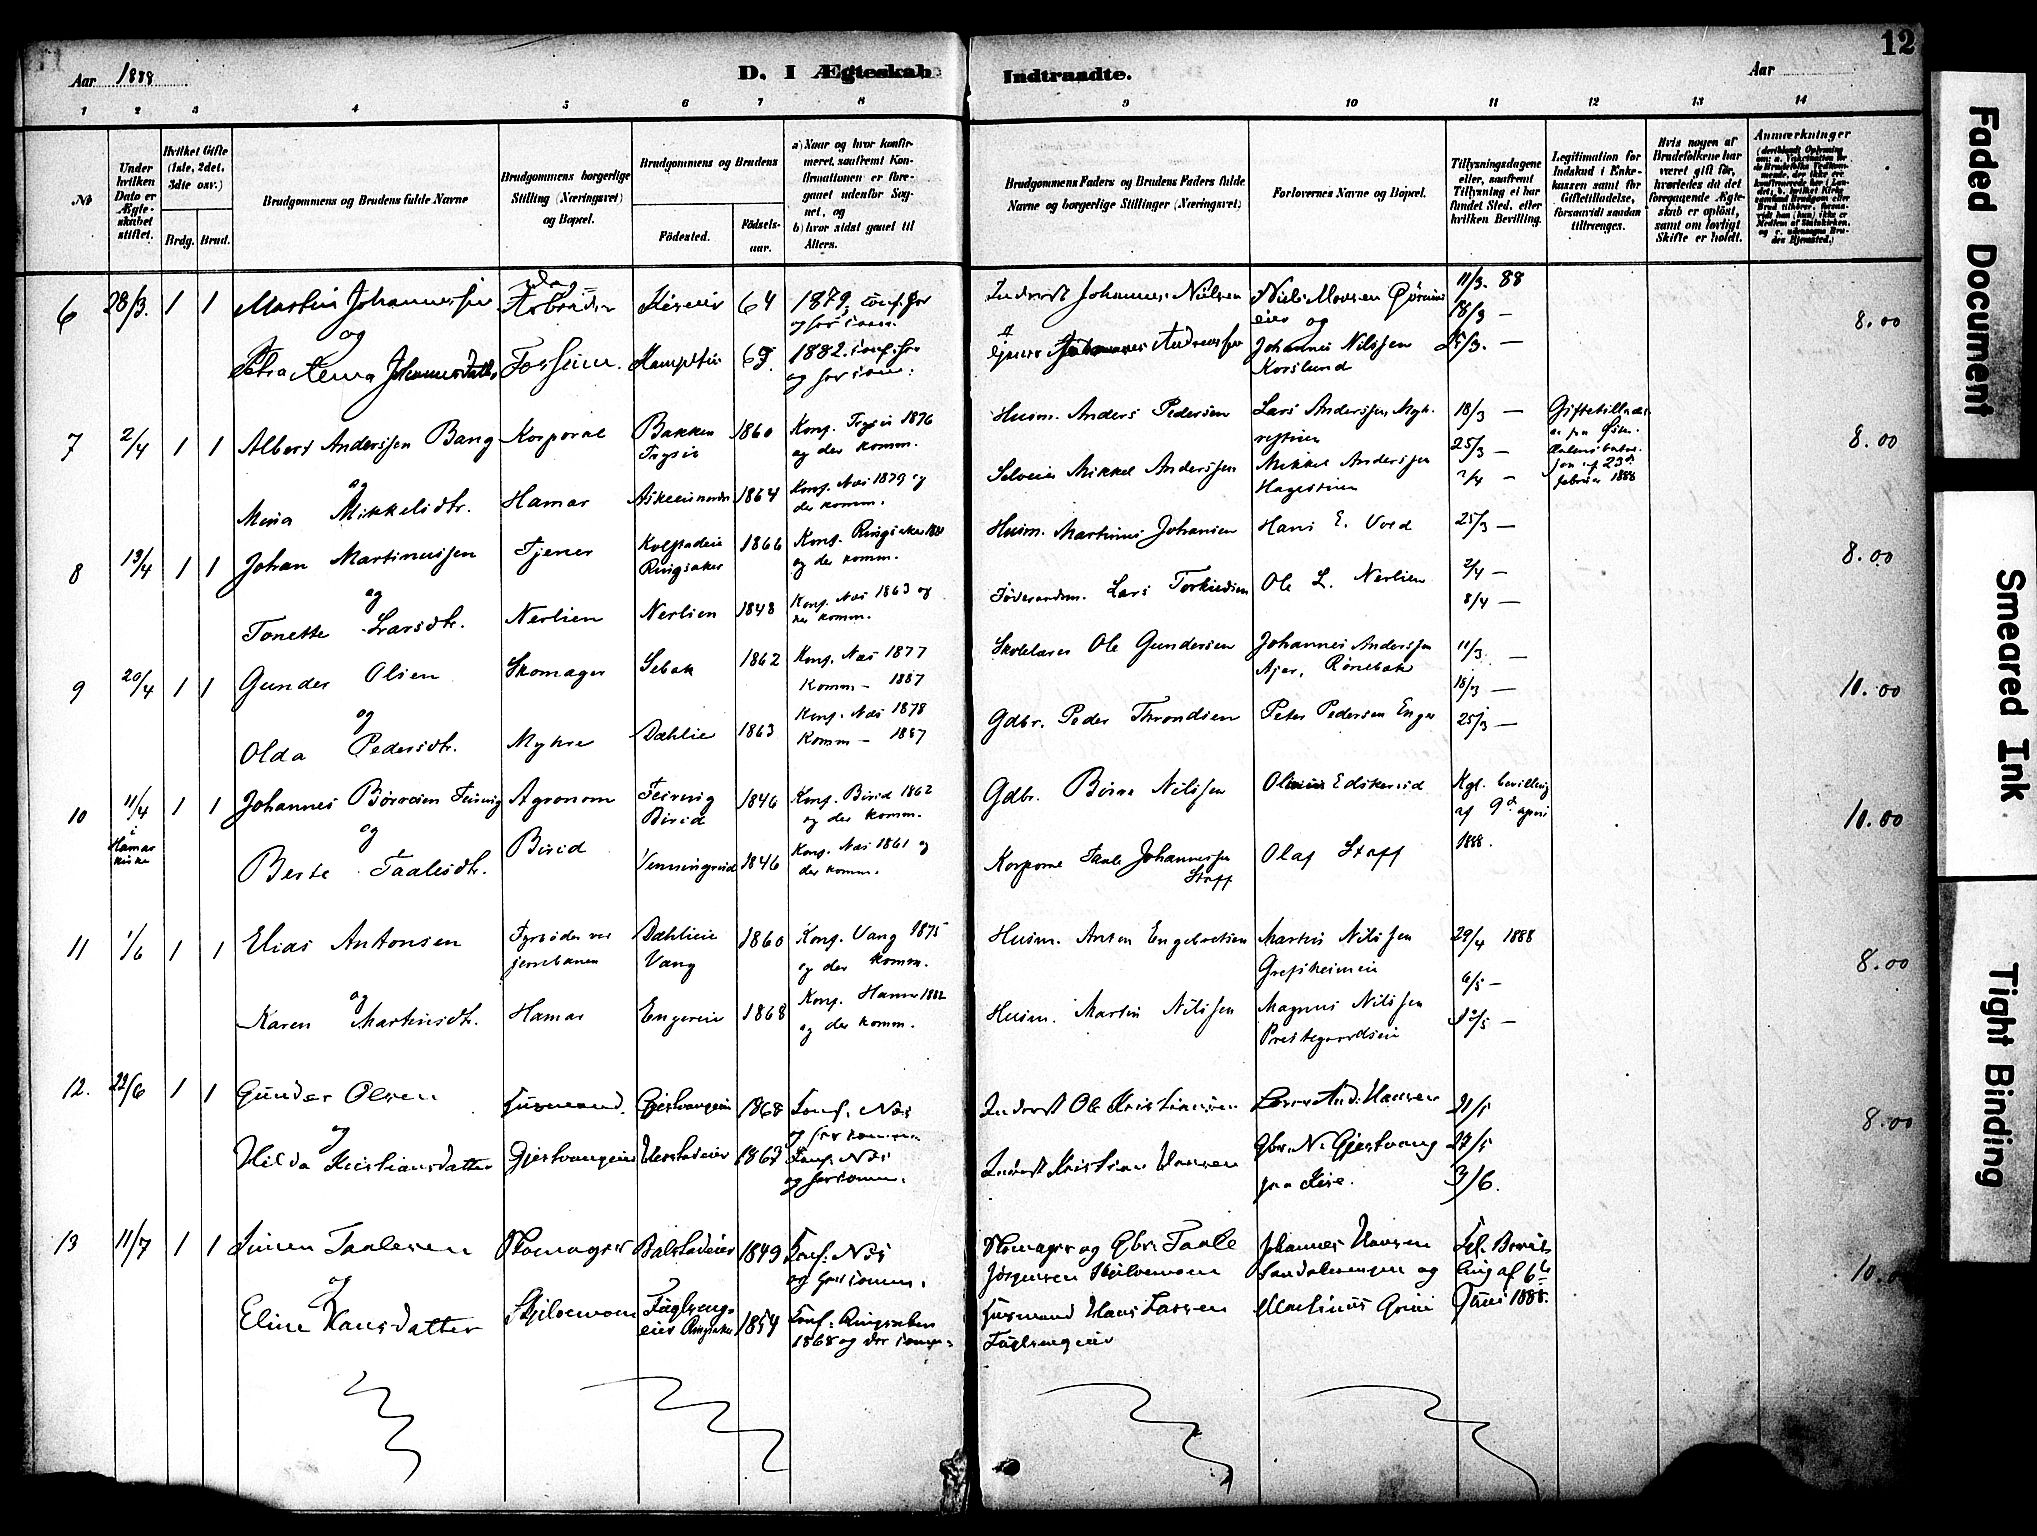 Aar 1888
D. I Ægteskab Indtraadte.
Aar
12
1 2 3 4 5 6 7 8 9 10 11 12 13 14
No
Under hvilken Dato er Ægteskabet stiftet.
Hvilket Gifte (1ste, 2det, 3die osv.)
Brdg. Brud.
Brudgommens og Brudens fulde Navne
Brudgommens borgerlige Stilling (Næringsvei) og Bopæl.
Brudgommens og Brudens
Fødested. Fødselsaar.
a) Naar og hvor konfirmeret, saafremt Konfirmationen er foregaaet udenfor Sognet, og
b) hvor sidst gaaet til Alters.
Brudgommens Faders og Brudens Faders fulde Navne og borgerlige Stillinger (Næringsvei)
Forlovernes Navne og Bopæl.
Tillysningsdagene eller, saafremt Tillysning ei har fundet Sted, efter hvilken Bevilling.
Legitimation for Indskud i Enkekassen samt for Giftetilladelse, forsaavidt saadan tiltrænges.
Hvis nogen af Brudefolkene har været gift før, hvorledes da det foregaaende Ægteskab er opløst, samt om lovligt Skifte er holdt.
Anmærkninger
6 28/3. 1 1 Martin Johannessen Kiseeie 64 1879, conf. her
og
Petra Johannesdatter Fosseien 1882. conf. her
Indrest Johannes Nilsen
Johannes Nilssen
Korslund
11/3. 88
18/3 —
25/3. —
8.00
7 2/4 1 1 Albert Anderssen Bang Korporal Bakken Trysil 1860 Konf. Trysil 1876
og der komm.
og
Mina Mikkelsdtr. Hamar 1864 Konf. Næs 1879 og
der komm.
Husm. Anders Pedersen Lars Anderssen
Selveier Mikkel Anderssen Mikkel Anderssen
18/3 —
25/3 —
2/4 —
februar 1888
8.00
8 13/4 1 1 Johan Martinussen Tjener Kolstadeie Ringsaker 1866 Konf. Ringsaker
og der komm.
og
Tonette Larsdtr. Nerlien Nerlien 1848 Konf. Næs 1863 og
her komm.
Husm. Martinus Johansen Hans E. Vold
Lars Torkildsen Ole L. Nerlien
25/3 —
2/4 —
8/4 —
8.00
9 20/4 1 1 Gunder Olsen Skomager Sebak 1862 Konf. Næs 1877
Komm — 1887
og
Olda Pedersdtr. Myhre Dæhlie 1863 Konf. Næs 1878
Komm — 1887
Skolelærer Ole Gundersen Johannes Anderssen
Ajer, Rønebak
Gdbr. Peder Throndsen Peter Pedersen Enger
11/3. —
18/3 —
25/3 —
10.00
10 11/4 i Hamar kirke 1 1 Johannes Børresen Feiring Agronom Feiring Birid 1846 Konf. Birid 1862
og der komm.
og
Berte Taalesdtr. Birid 1846 Konf. Næs 1861 og
der komm.
Gdbr. Børre Nilssen
Taale Johannessen Staff Olaf Staff
Kgl. bevilling
af 9d april
1888.
10.00
11 1/6 1 1 Elias Antonsen Fyrbøder ved jernbanen Dæhlieie Vang 1860 Konf. Vang 1875
og der komm.
og
Karen Martinsdtr. Hamar Engereie 1868 Konf. Hamar 1882
og der komm.
Husm. Anton Engebretsen Martin Nilssen
Grefsheimeie
Husm. Martin Nilssen Magnus Nilssen
Prestegaardseie
29/4 1888
6/5 —
12/5 —
8.00
12. 22/6 1 1 Gunder Olsen Husmand. Gjestvangeie 1868 Conf. Næs
og her comm.
og
Hilda Kristiansdatter Gjestvangeie Conf. Næs
og her comm.
Indrest Ole Kristiansen And. Hansen
Indrest Kristian Hansen Gbr. N. Gjestvang
fra Kise.
21/5
27/5
3/6.
8.00
13 11/7 1 1 Simen Taalesen Skomager Balstadeie 1849 Conf. Næs
og her comm.
og
Eline Hansdatter Skjelvemoen Fuglsengeie Ringsaker 1854 Conf. Ringsaker
1868 og der comm.
Skomager og Gbr. Taale
Jørgensen Skjelvemoen
Husmand Hans Larsen
Fuglsengeie
Johannes Hansen
og
Martinus Grini
af 6te
Juni 1888.
10.00
Faded Document
Smeared Ink
Tight Binding